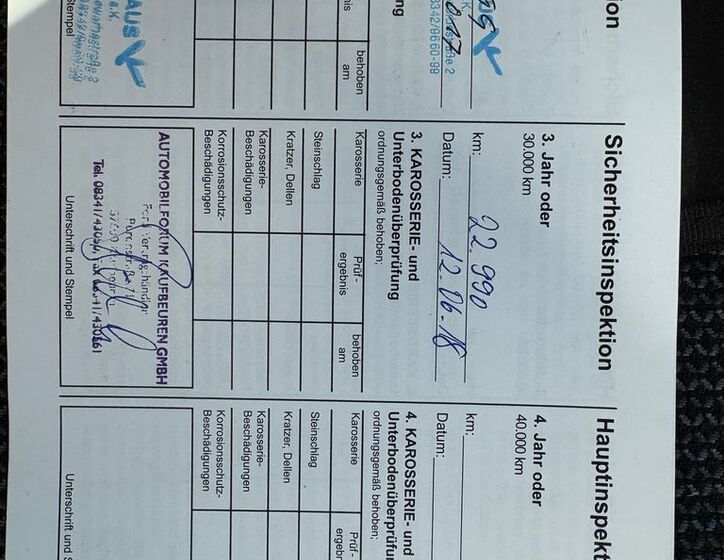 ion
US
2
8342/9660-99
ng
bnis
behoben
am
AUS
e.K.
Stempel
Sicherheitsinspektion
3. Jahr oder
30.000 km
km: 22.990
Datum: 12.06.18
3. KAROSSERIE- und
Unterbodenüberprüfung
ordnungsgemäß behoben:
Karosserie
Prüf-
ergebnis
behoben
am
Steinschlag
Kratzer, Dellen
Karosserie-
Beschädigungen
Korrosionsschutz-
Beschädigungen
AUTOMOBILFORUM KAUFBEUREN GMBH
Tel. 08341/4305
Unterschrift und Stempel
Hauptinspekt
4. Jahr oder
40.000 km
km:
Datum:
4. KAROSSERIE- und
Unterbodenüberprü
ordnungsgemäß behoben:
Karosserie
Prüf-
ergebn
Steinschlag
Kratzer, Dellen
Karosserie-
Beschädigungen
Korrosionsschutz-
Beschädigungen
Unterschrift und S